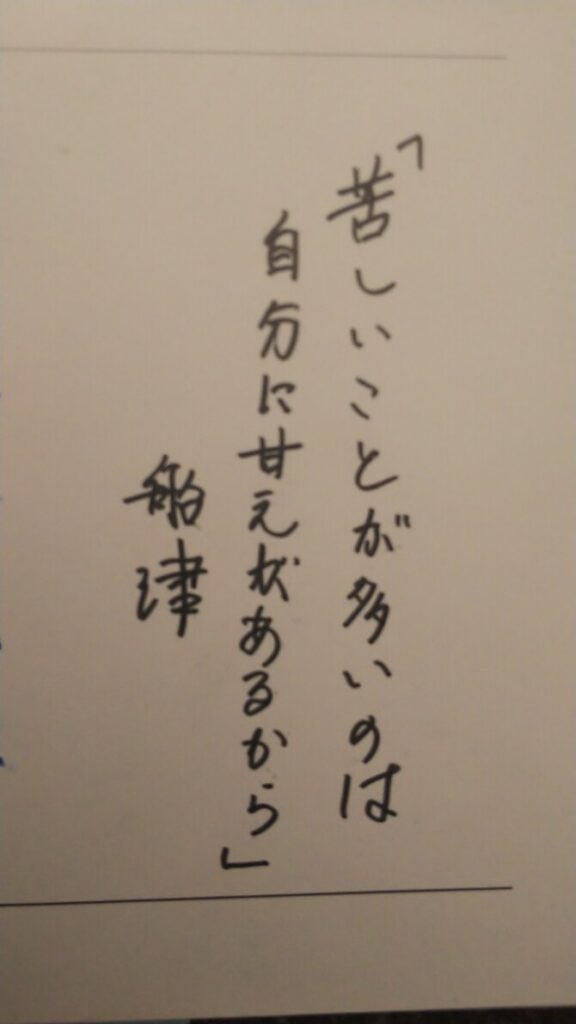 「苦しいことが多いのは
自分に甘えがあるから」
船津